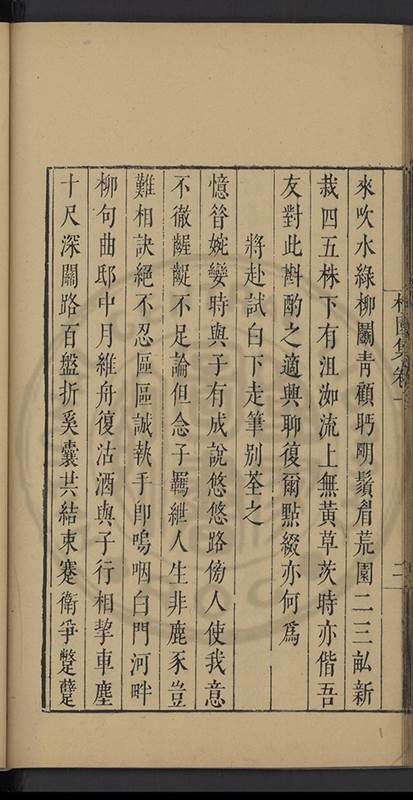 來吹水綠柳闢青顧眄明鬚眉荒園二三畝新
栽四五株下有沮洳流上無黃草茨時亦偕吾
友對此斟酌之適興聊復爾點綴亦何爲
將赴試白下走筆別荃之
憶昔婉孌時與子有成說悠悠路傍人使我意
不徹齷齪不足論但念子羈紲人生非鹿豕豈
難相訣絕不忍區區誠執手卽嗚咽白門河畔
柳句曲邸中月維舟復沽酒與子行相挈車塵
十尺深關路百盤折奚囊共結束蹇衛爭蹩躠
園集卷一